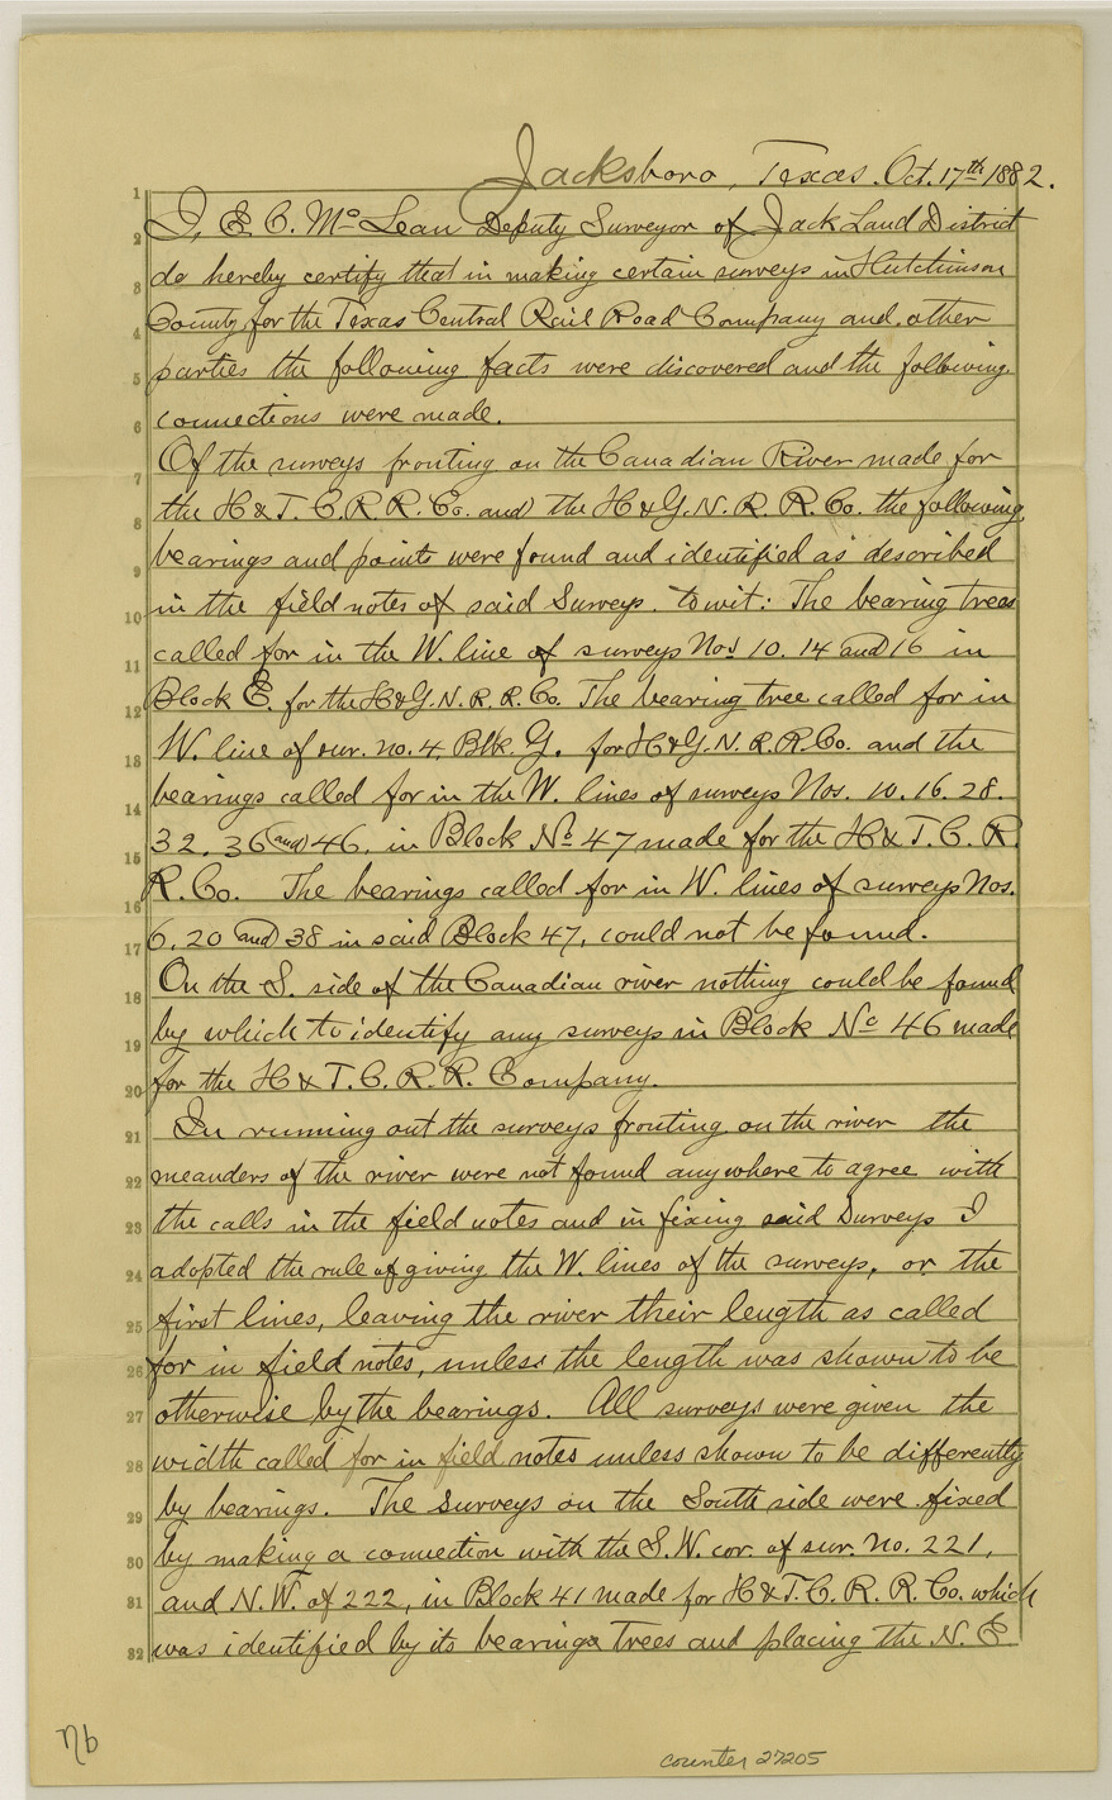 Jacksboro, Texas. Oct. 17th 1882.
1
I, E. C. McLean Deputy Surveyor of Jack Land District
2
do hereby certify that in making certain surveys in Hutchinson
3
County for the Texas Central Rail Road Company and other
4
parties the following facts were discovered and the following
5
connections were made.
6
Of the surveys fronting on the Canadian River made for
7
the H & T. C. R. R. Co. and the H & G. N. R. R. Co. the following
8
bearings and points were found and identified as described
9
in the field notes of said Surveys. to wit: The bearing trees
10
called for in the W. line of surveys Nos 10. 14 and 16 in
11
Block E. for the H & G. N. R. R. Co. The bearing tree called for in
12
W. line of sur. no. 4, Blk. G. for H & G. N. R. R. Co. and the
13
bearings called for in the W. lines of surveys Nos. 10. 16. 28.
14
32. 36 and 46. in Block No 47 made for the H & T. C. R.
15
R. Co. The bearings called for in W. lines of surveys Nos.
16
6. 20 and 38 in said Block 47, could not be found.
17
On the S. side of the Canadian river nothing could be found
18
by which to identify any surveys in Block No 46 made
19
for the H & T. C. R. R. Company.
20
In running out the surveys fronting on the river the
21
meanders of the river were not found anywhere to agree with
22
the calls in the field notes and in fixing said Surveys I
23
adopted the rule of giving the W. lines of the surveys, or the
24
first lines, leaving the river their length as called
25
for in field notes, unless the length was shown to be
26
otherwise by the bearings. All surveys were given the
27
width called for in field notes unless shown to be differently
28
by bearings. The surveys on the South side were fixed
29
by making a connection with the S. W. cor. of sur. no. 221,
30
and N. W. of 222, in Block 41 made for H & T. C. R. R. Co. which
31
was identified by its bearings trees and placing the N. E
32
counter 27205